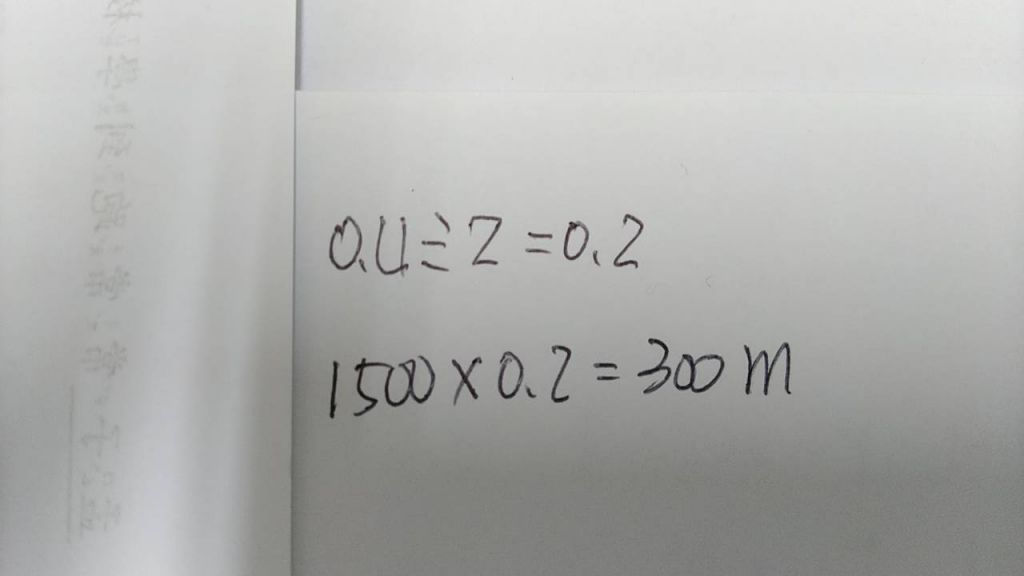 0.4÷2=0.2
1500×0.2=300m